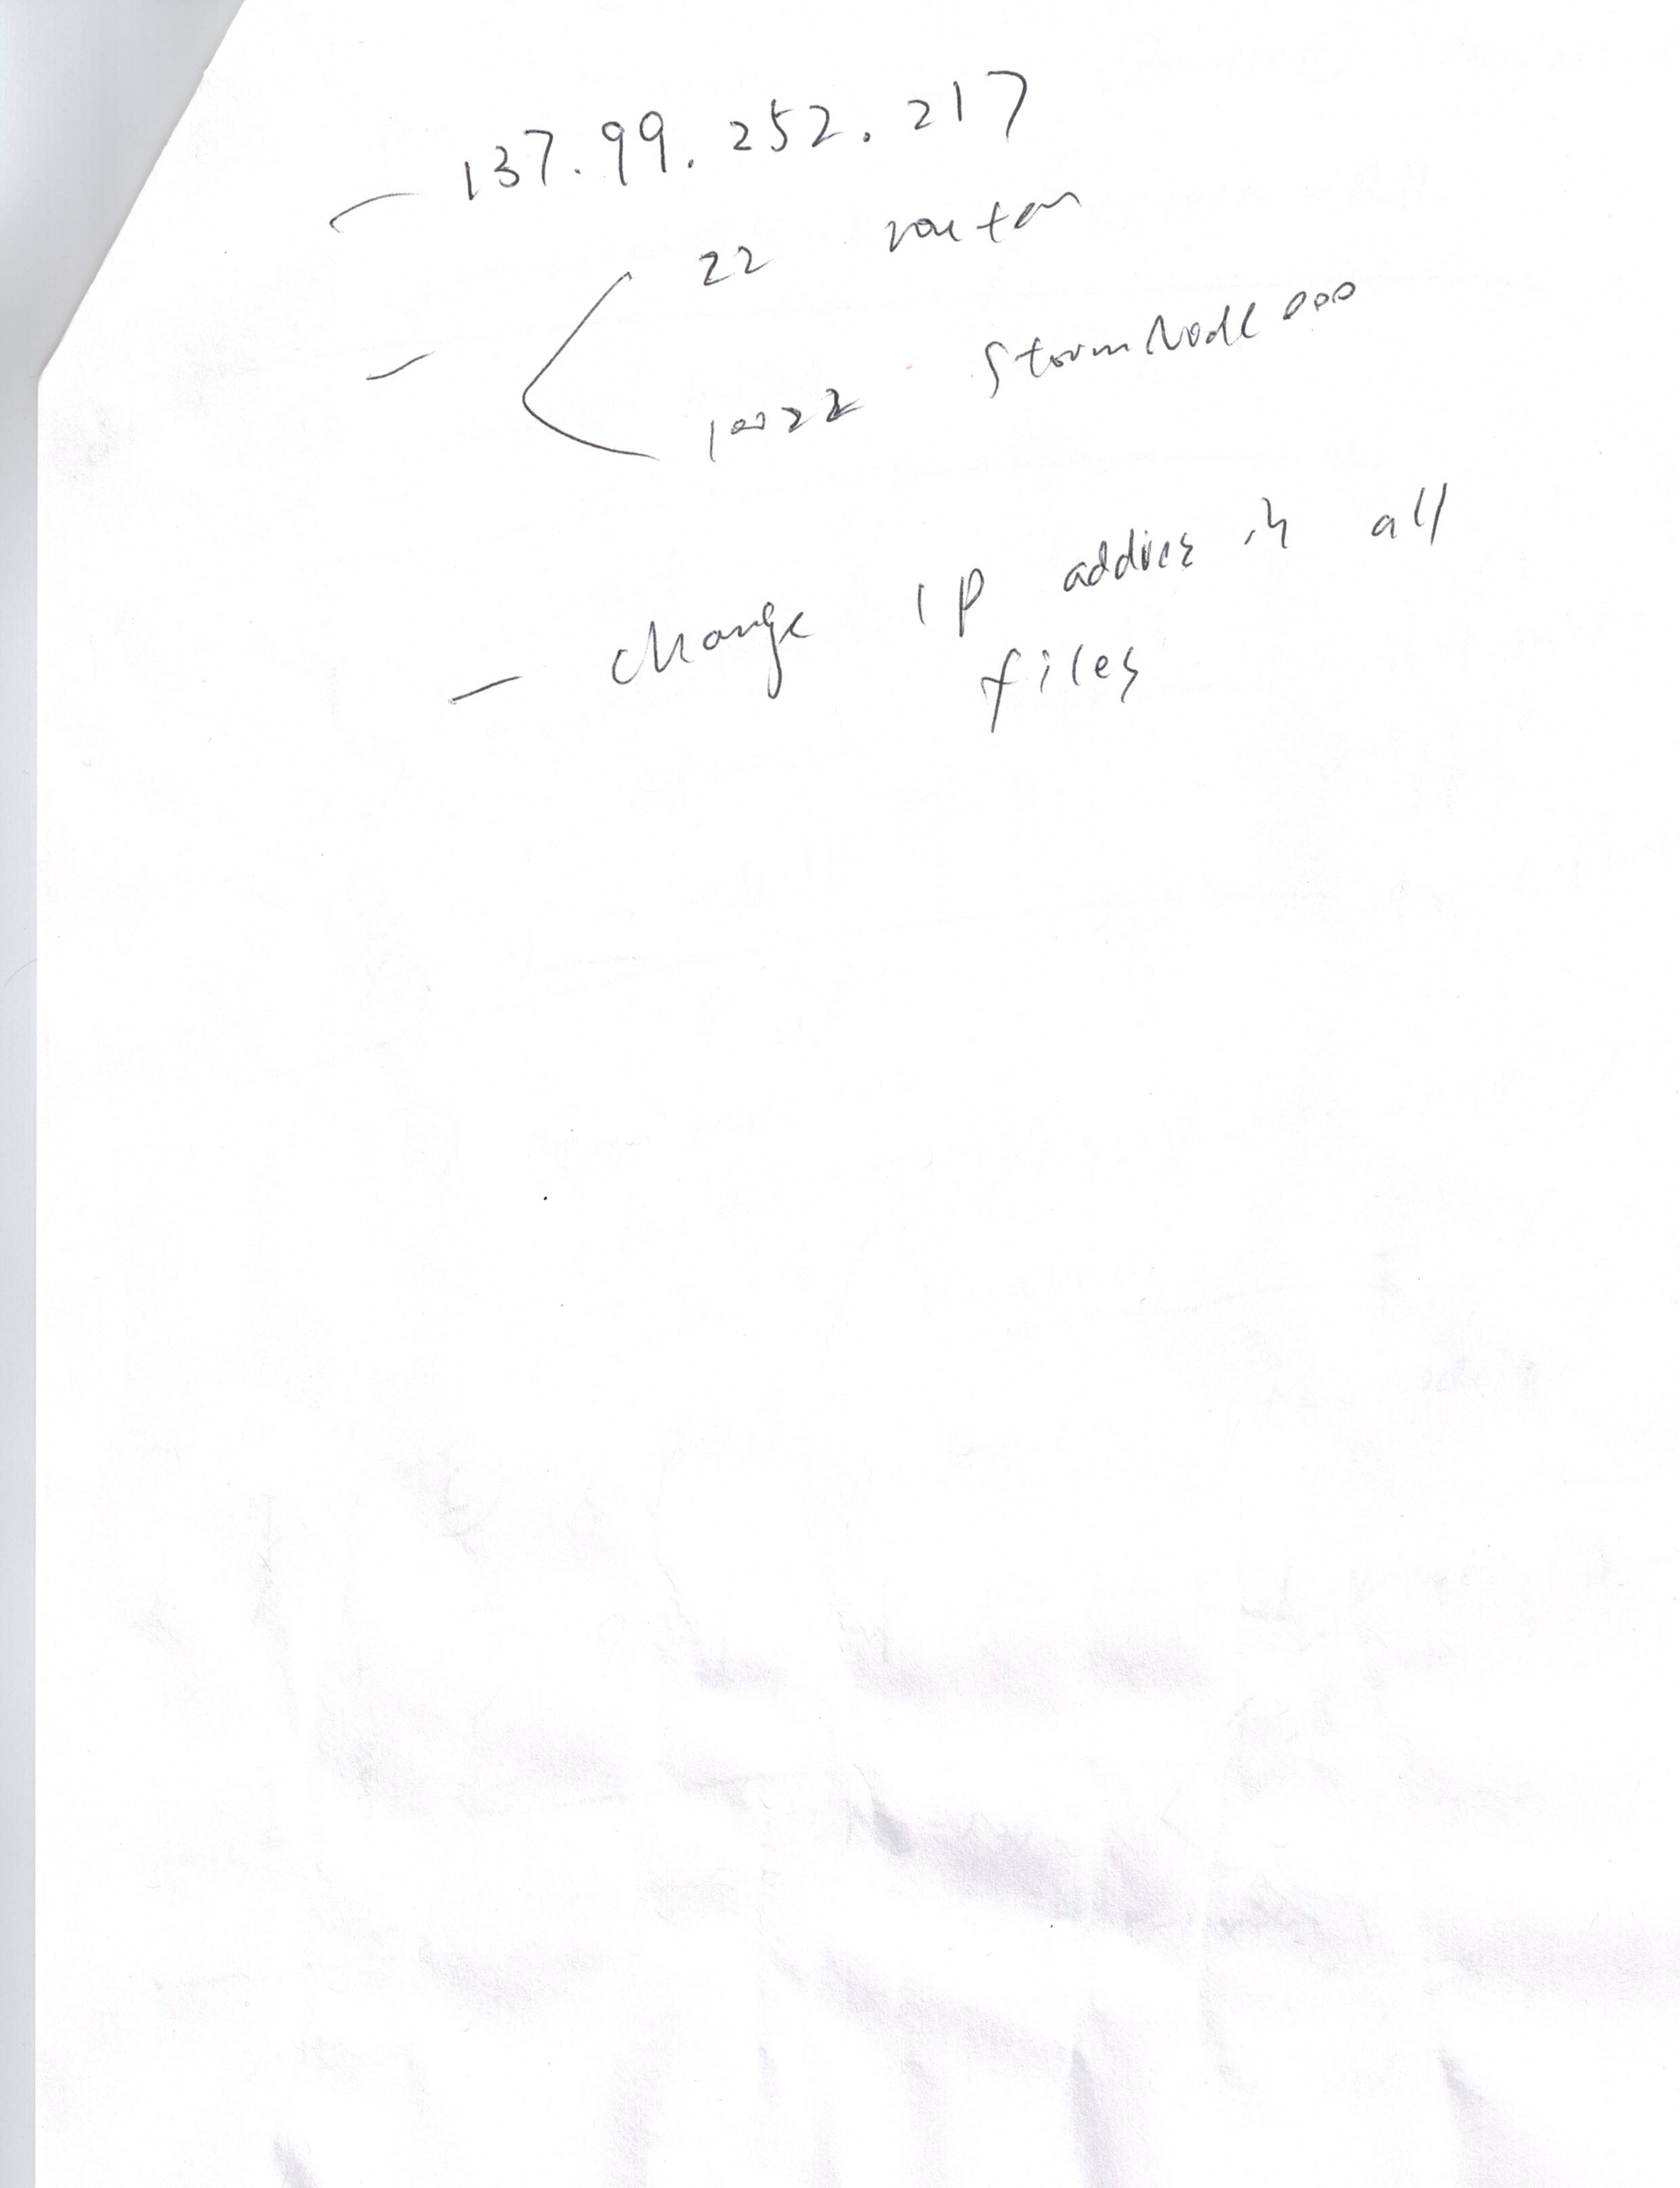 - 137.99.252.217
22 router
- 10022 StormNode000
- change IP address in all
files